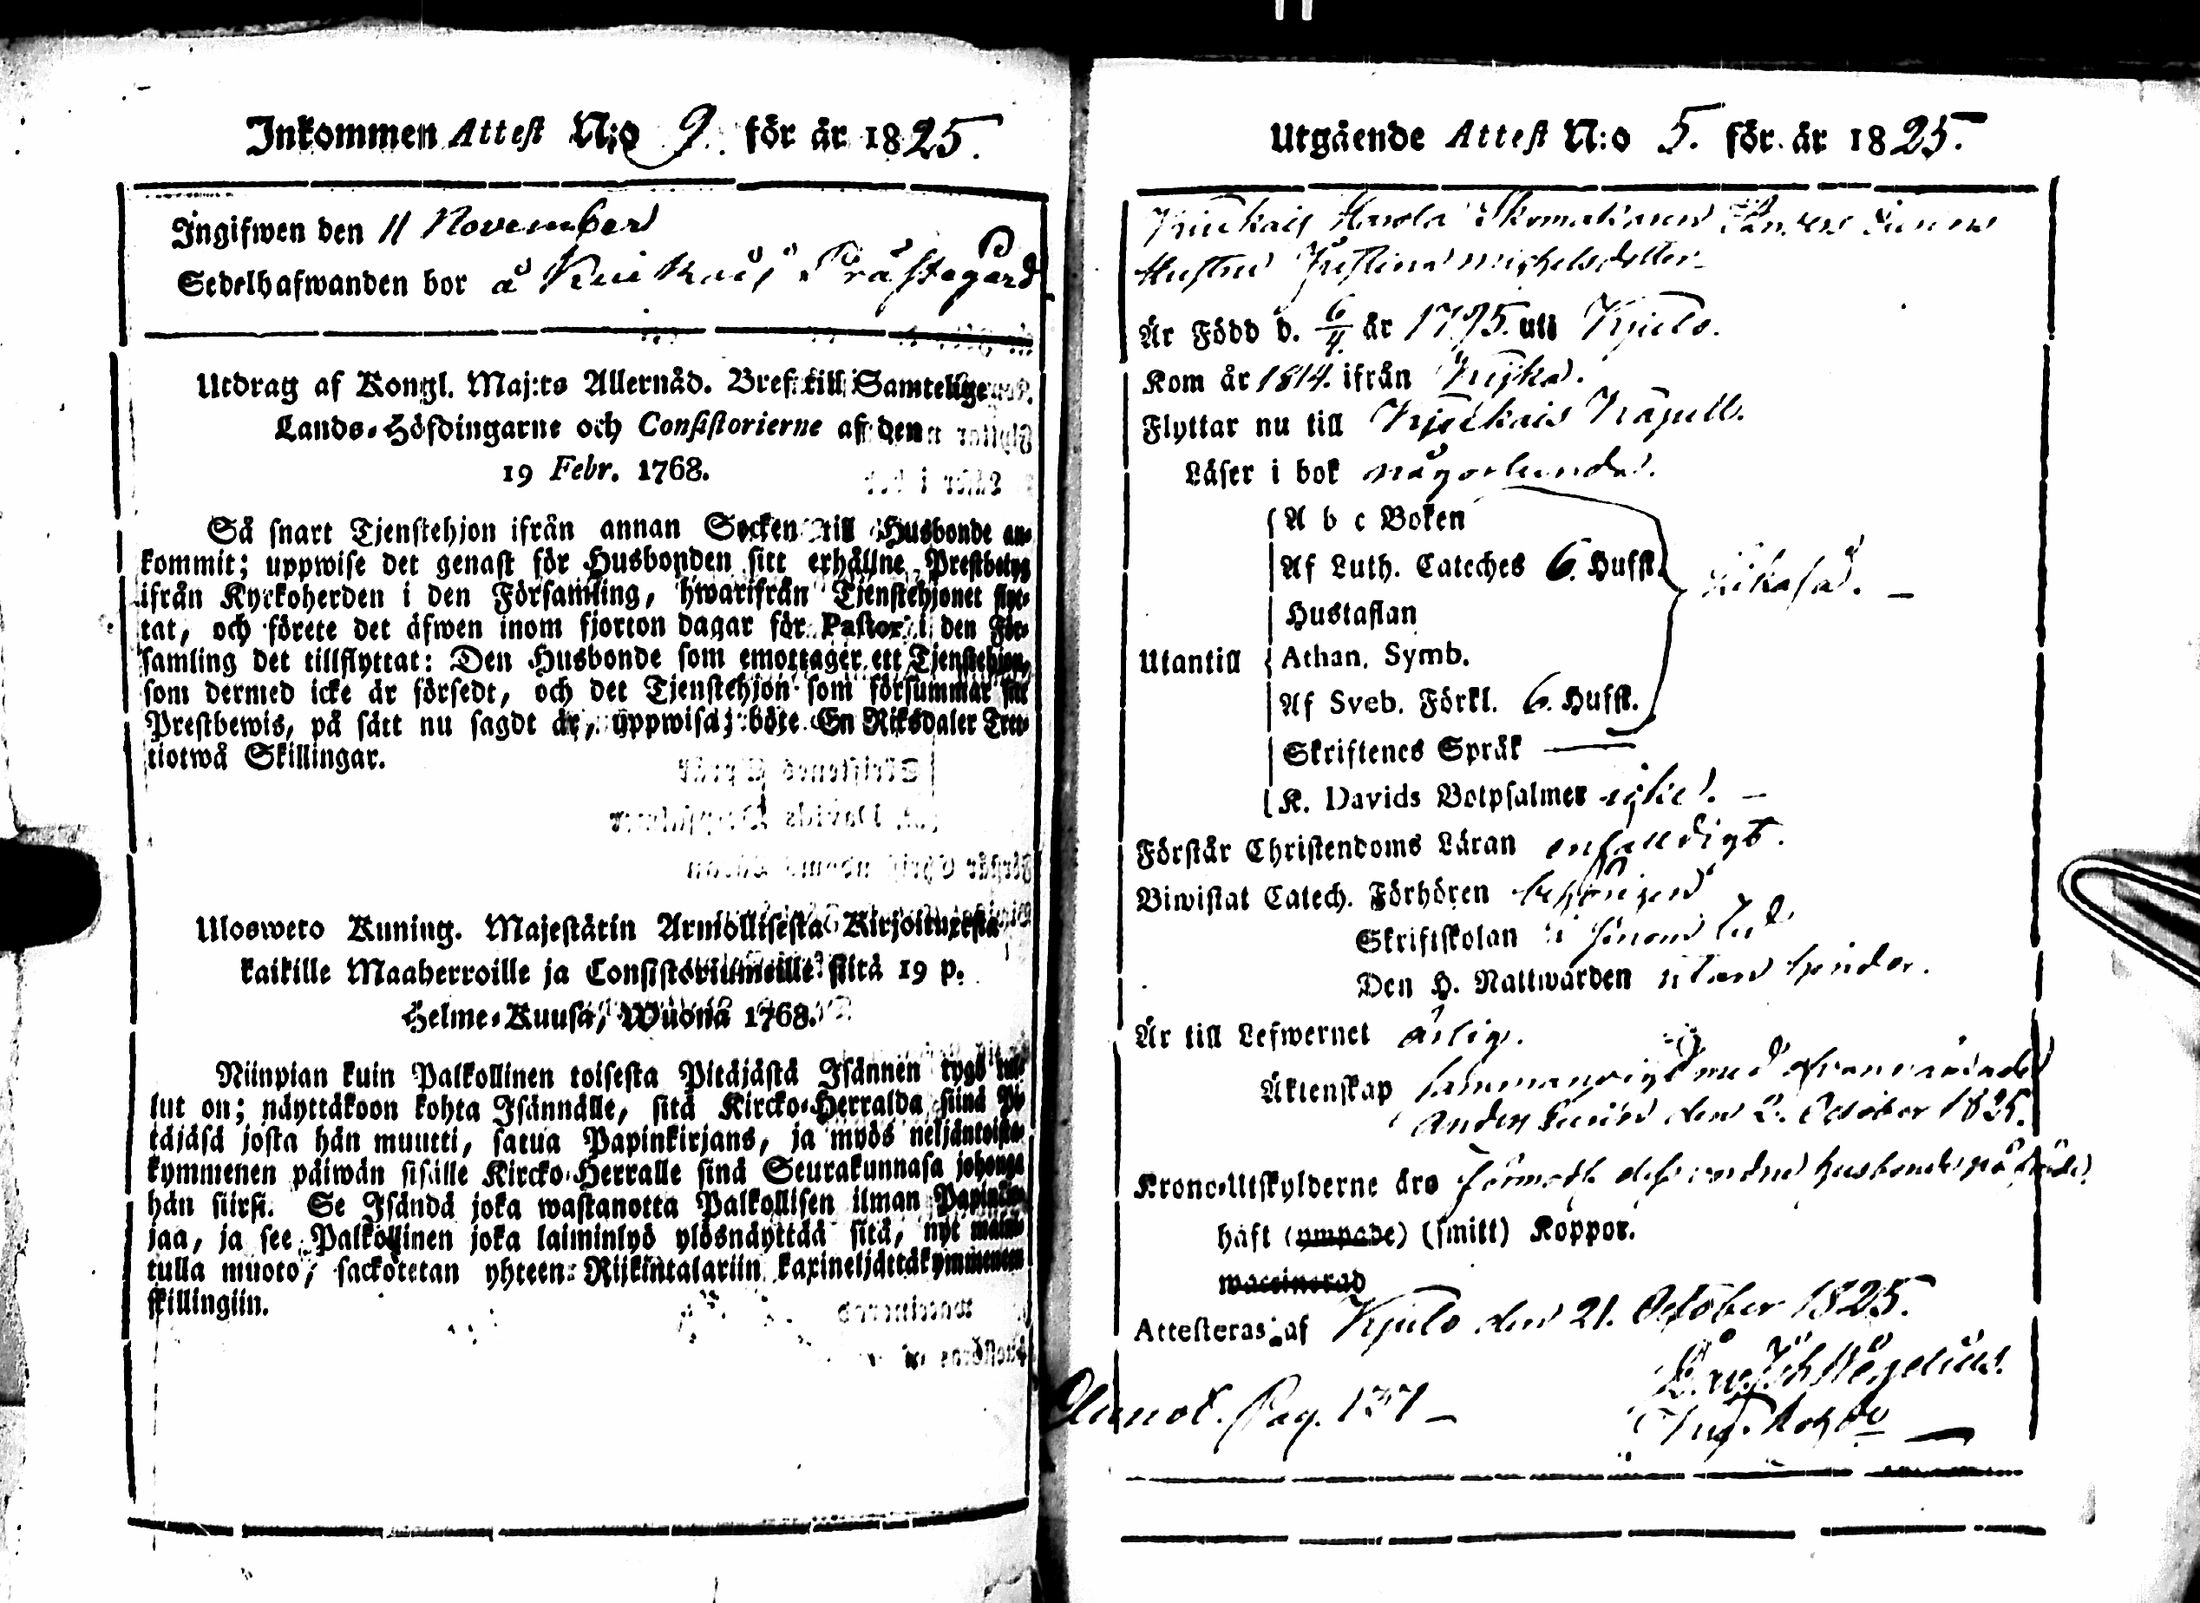 Inkommen Attest N:o 9. för år 1825.
Ingifwen den 11 November
Sedelhafwanden bor å Kiukais Prästegård
Utdrag af Kongl. Maj:ts Allernåd. Bref till Samtelige
Lands-Höfdingarne och Consistorierne af den
19 Febr. 1768.
Så snart Tjenstehjon ifrån annan Socken till Husbonde an-
kommit; uppwise det genast för Husbonden sitt erhållne Prestbetyg
ifrån Kyrkoherden i den Församling, hwarifrån Tjenstehjonet flyt-
tat, och förete det äfwen inom fjorton dagar för Pastor i den För-
samling det tillflyttat: Den Husbonde som emottager ett Tjenstehjon,
som dermed icke är försedt, och det Tjenstehjon som försummar sitt
Prestbewis, på sätt nu sagdt är, uppwisa; böte En Riksdaler Tret-
tiotwå Skillingar.
Uloswero Kuning. Majestätin Armollisesta Kirjoituxesta
kaikille Maaherroille ja Consistoriumeille siitä 19 p.
Helme-Kuusa, Wuonna 1768.
Niinpian kuin Palkollinen toisesta Pitäjästä Isännen tygö tul-
lut on; näyttäkoon kohta Isännälle, sitä Kircko-Herralda siinä Pi-
täjäsä josta hän muutti, satua Papinkirjans, ja myös neljäntoista-
kymmenen päiwän sisälle Kircko-Herralle sinä Seurakunnasa johonga
hän siirsi. Se Isändä joka wastanotta Palkollisen ilman Papinkir-
jaa, ja see Palkollinen joka laiminlyö ylösnäyttää sitä, nyt maini-
tulla muoto, sackotetan yhteen Riikintalariin kaxineljättäkymmenen
skillingiin.
Utgående Attest N:o 5. för år 1825.
Kiukais Skomakaren
Hustru Justina Michelsdotter
Är Född d. 6/4 år 1795. uti Kjulo.
Kom år 1814. ifrån
Flyttar nu till Kjukais Kapell.
Läser i bok någorlunda.
Utantill
A b c Boken
Af Luth. Cateches 6. Hufst.
Hustaflan
Athan. Symb.
Af Sveb. Förkl. 6. Hufst.
Likaså. —
Skriftenes Språk —
K. Davids Botpsalmer icke. —
Förstår Christendoms Läran enfalldigt.
Biwistat Catech. Förhören behörigen
Skriftskolan i sinom tid
Den H. Nattwarden utan hinder.
Är till Lefwernet ärlig.
Äktenskap sammanvigd med ofvannämnde
Anders den 2. October 1825.
Krono-Utskylderne äro husbonde
haft (ympade) (smitt) Koppor.
waccinerad
Attesteras af Kjulo den 21. October 1825.
Joh Wegelius.
Annot. Pag. 137 —